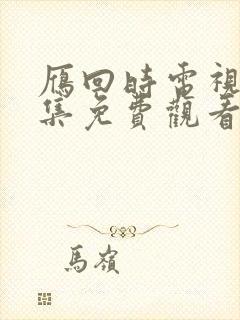 雁回時電視
集免費觀看
馬嶺